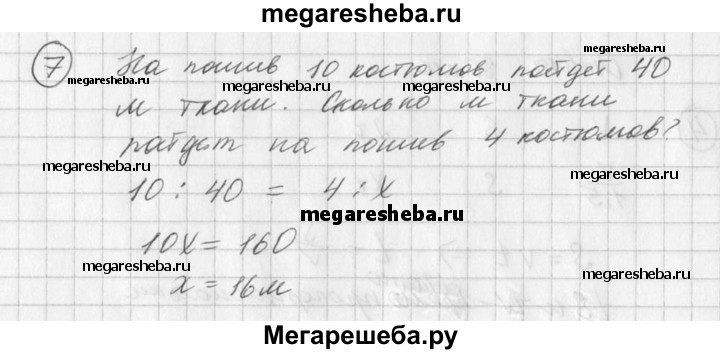 megaresheba.ru
7 На пошив 10 костюмов пойдет 40
м ткани. Сколько м ткани
megaresheba.ru megaresheba.ru
пойдет на пошив 4 костюмов?
megaresheba.ru megaresheba.ru
10 : 40 = 4 : х
megaresheba.ru
10х = 160
megaresheba.ru megaresheba.ru
х = 16м
Мегарешеба.ру